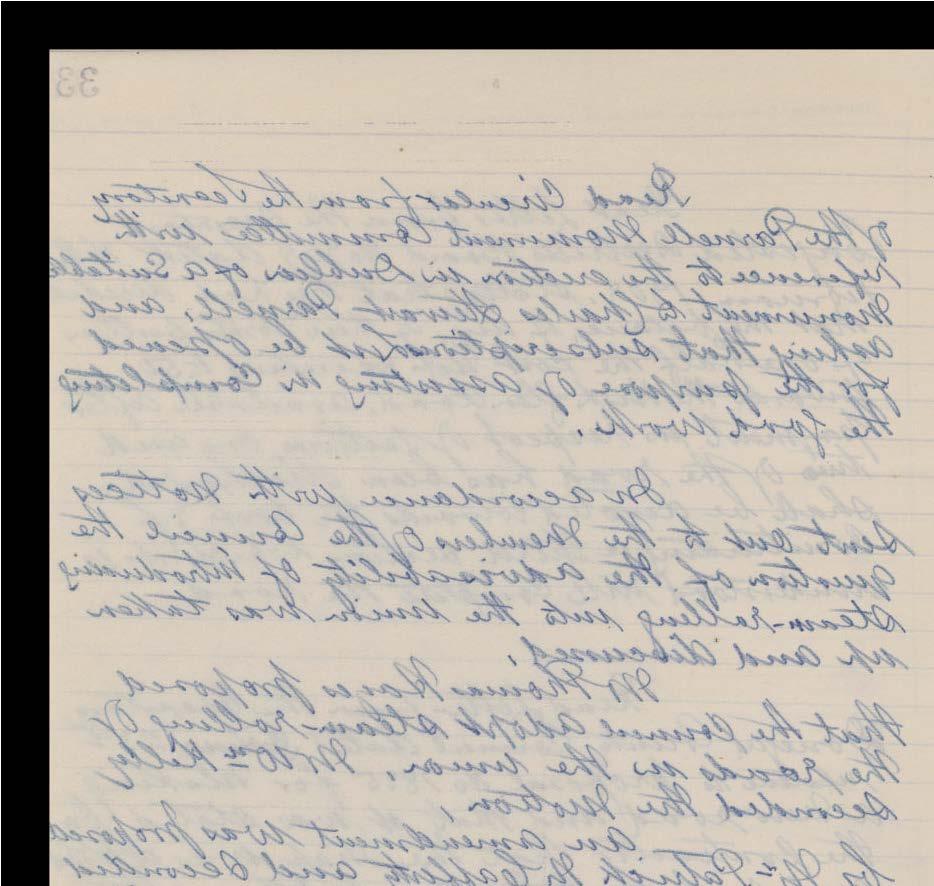 33
Read Circular from the Secretary
of the Parnell Monument Committee with
reference to the erection in Dublin of a Suitable
Monument to Charles Stewart Parnell, and
asking that subscription list be opened
for the purpose of assisting in Completing
the good work.
In accordance with Notices
sent out to the Members of the Council the
question of the advisability of introducing
steam-rolling into the Union was taken
up and discussed.
Mr Thomas proposed
that the Council adopt steam-rolling of
the roads in the Union, Mr Wm Kelly
seconded the Motion,
An amendment was proposed
by Mr Patrick McCa and seconded